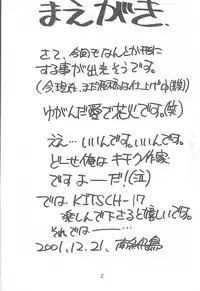 まえがき.
さて、今回もなんとか形に
する事が出来そうです。
(今現在、まだ原稿は仕上げ中(爆))
ゆがんだ愛で花火です。(笑)
ええ…いいんです。いいんです。
どーせ俺はキチク作家
ですよーだ!(泣)
では、KITSCH-17
楽しんで下さると嬉しいです。
それでは――…
2001.12.21.
2